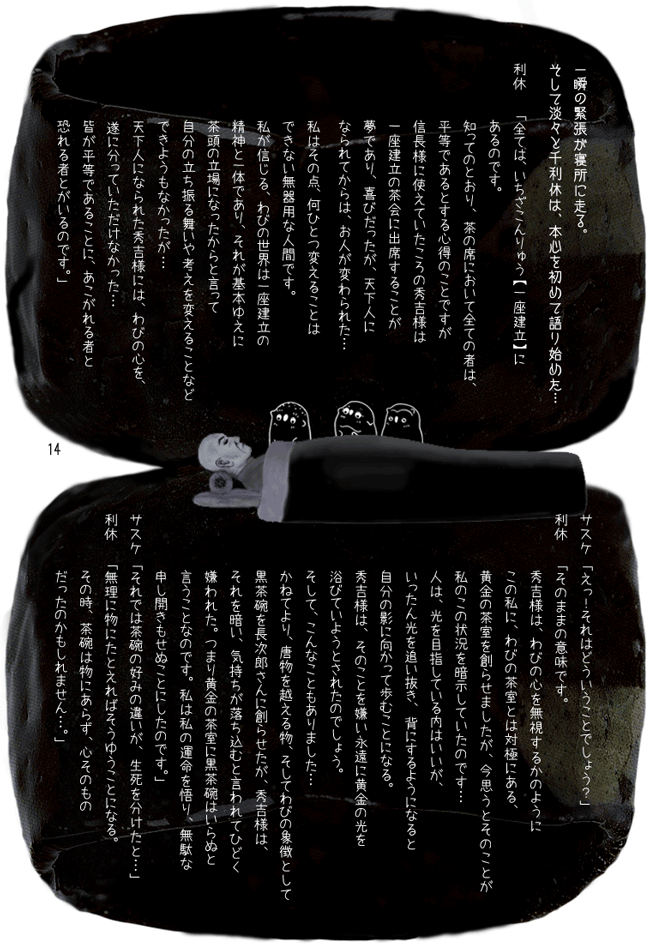 一瞬の緊張が寝所に走る。
そして淡々と千利休は、本心を初めて語り始めた…
利休 「全ては、いちざこんりゅう【一座建立】に
あるのです。
知ってのとおり、茶の席において全ての者は、
平等であるとする心得のことですが
信長様に使えていたころの秀吉様は
一座建立の茶会に出席することが
夢であり、喜びだったが、天下人に
なられてからは、お人が変わられた…
私はその点、何ひとつ変えることは
できない無器用な人間です。
私が信じる、わびの世界は一座建立の
精神と一体であり、それが基本ゆえに
茶頭の立場になったからと言って
自分の立ち振る舞いや考えを変えることなど
できようもなかったが…
天下人になられた秀吉様には、わびの心を、
遂に分っていただけなかった…
皆が平等であることに、あこがれる者と
恐れる者とがいるのです。」
14
サスケ 「えっ！それはどういうことでしょう？」
利休 「そのままの意味です。
秀吉様は、わびの心を無視するかのように
この私に、わびの茶室とは対極にある、
黄金の茶室を創らせましたが、今思うとそのことが
私のこの状況を暗示していたのです…
人は、光を目指している内はいいが、
いったん光を追い抜き、背にするようになると
自分の影に向かって歩むことになる。
秀吉様は、そのことを嫌い永遠に黄金の光を
浴びていようとされたのでしょう。
そして、こんなこともありました…
かねてより、唐物を越える物、そしてわびの象徴として
黒茶碗を長次郎さんに創らせたが、秀吉様は、
それを暗い、気持ちが落ち込むと言われてひどく
嫌われた。つまり黄金の茶室に黒茶碗はいらぬと
言うことなのです。私は私の運命を悟り、無駄な
申し開きもせぬことにしたのです。」
サスケ 「それでは茶碗の好みの違いが、生死を分けたと…」
利休 「無理に物にたとえればそうゆうことになる。
その時、茶碗は物にあらず、心そのもの
だったのかもしれません…。」